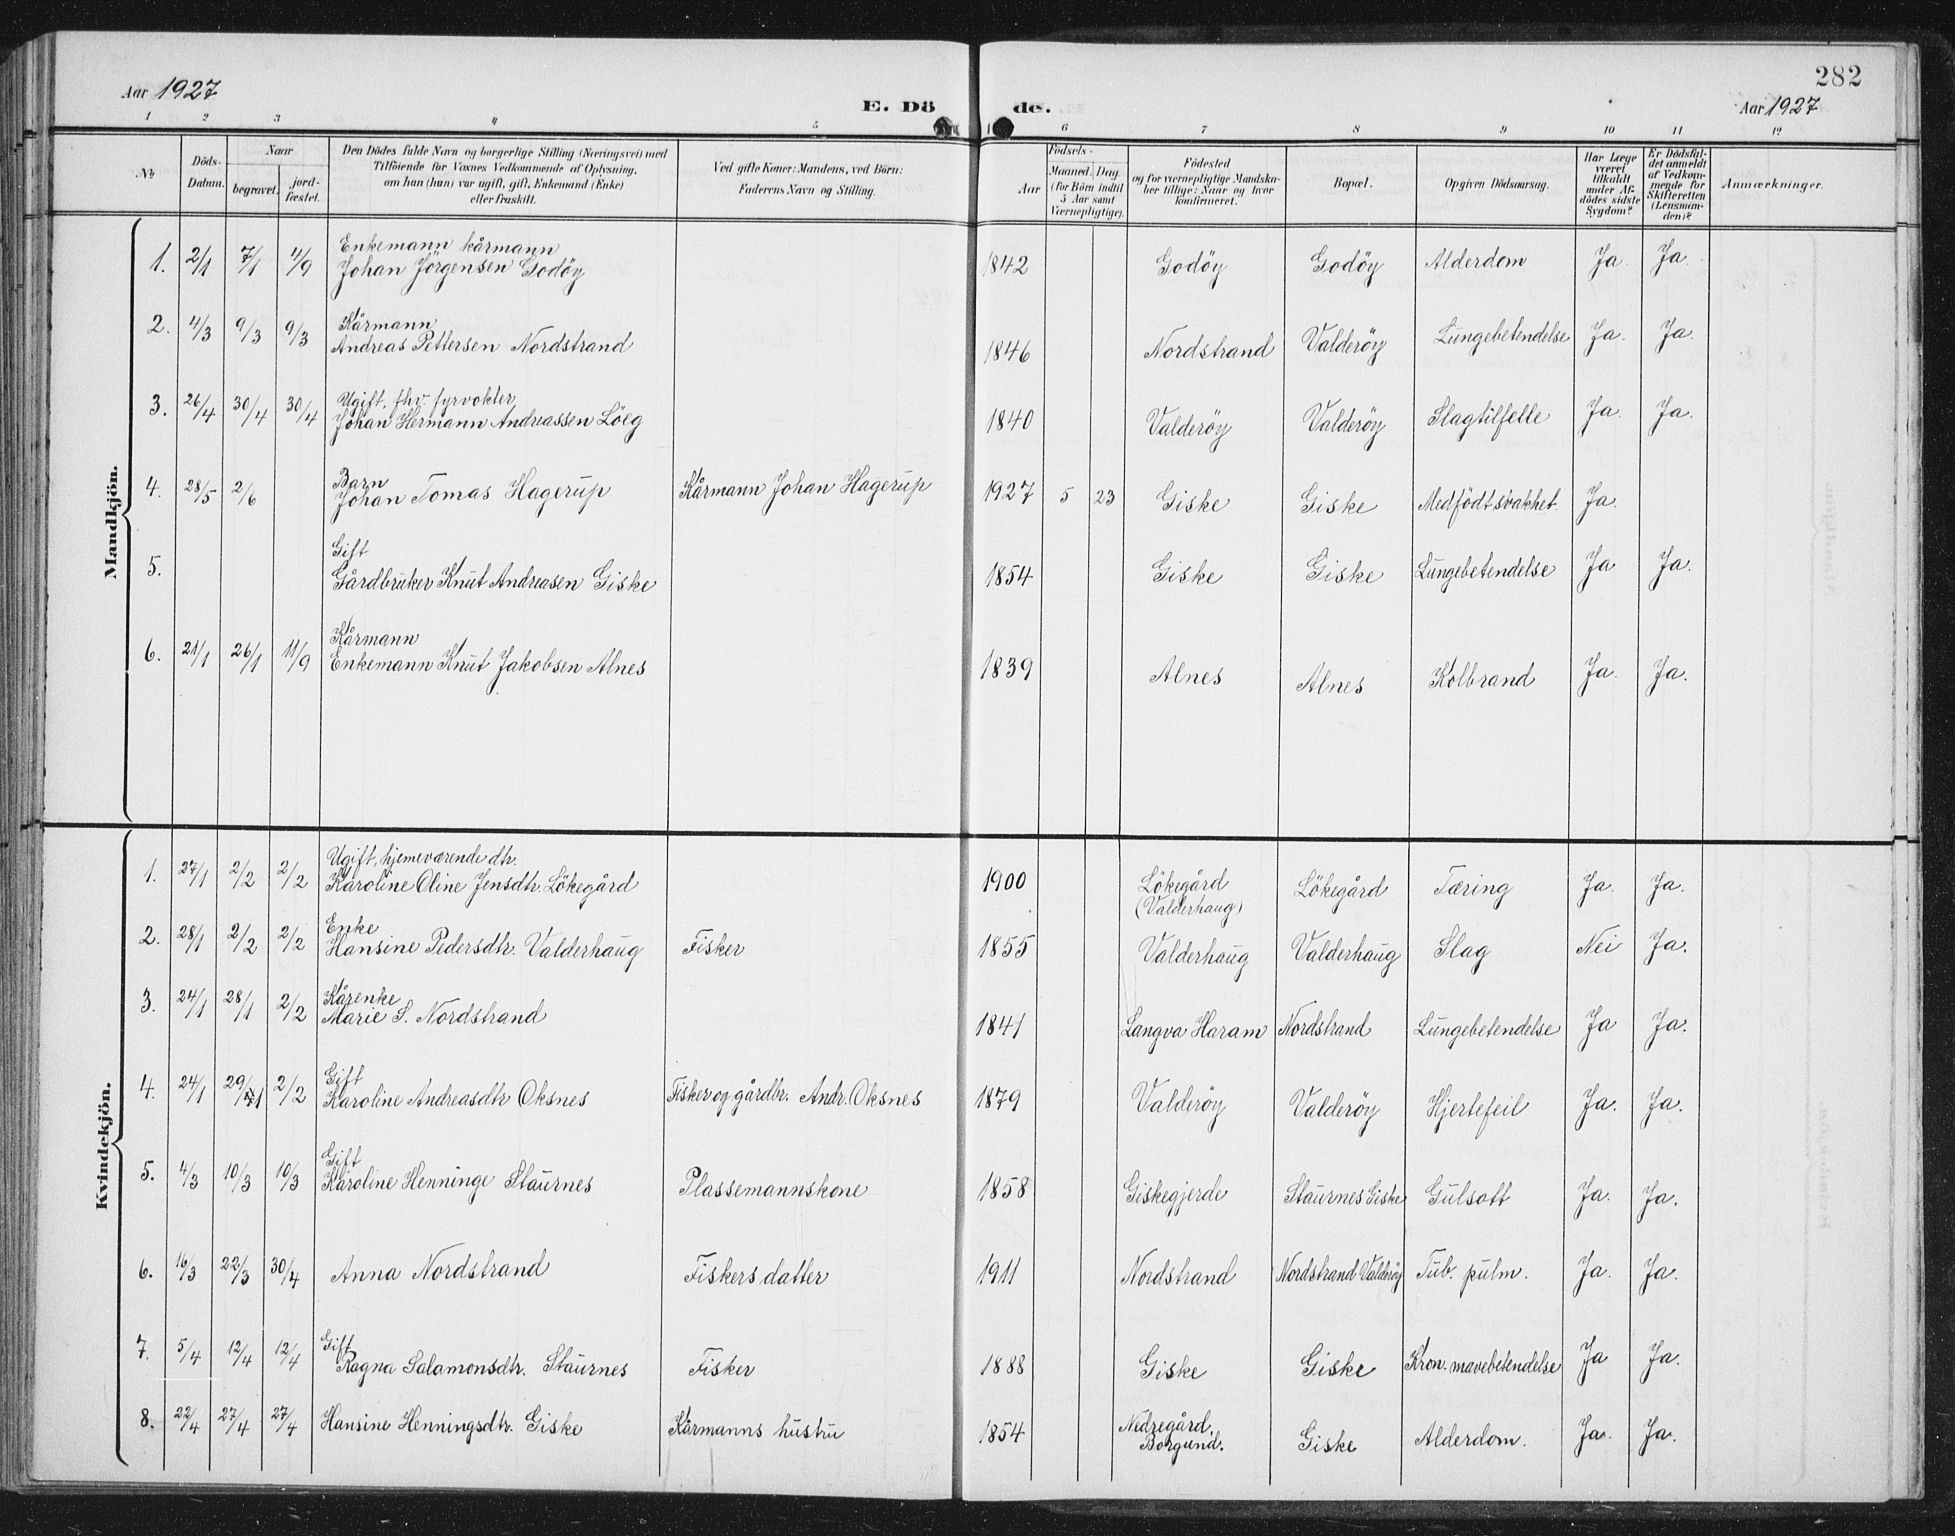 282
Aar 1927
E. Dö de.
Aar 1927
1 2 3 4 5 6 7 8 9 10 11 12
No
Döds-
Datum.
Naar
begravet.
jord-
fæstet.
Den Dödes fulde Navn og borgerlige Stilling (Næringsvei) med
Tilföiende for Voxnes Vedkommende af Oplysning,
om han (hun) var ugift, gift, Enkemand (Enke)
eller fraskilt.
Ved gifte Koner: Mandens, ved Börn:
Faderens Navn og Stilling.
Födsels-
Aar
Maaned. Dag.
(for Börn indtil
5 Aar samt
Værnepligtige).
Födested
og for værnepligtige Mandska-
ber tillige: Naar og hvor
konfirmeret.
Bopæl.
Opgiven Dödsaarsag.
Har Læge
været
tilkaldt
under Af-
dödes sidste
Sygdom?
Er Dödsfal-
det anmeldt
af Vedkom-
mende for
Skifteretten
(Lensman-
den)?
Anmærkninger.
Mandkjön.
Enkemann kårmann
1. 2/1 7/1 11/9 Johan Jörgensen Godöy 1842 Godöy Godöy Alderdom Ja. Ja.
Kårmann
2. 4/3 9/3 9/3 Andreas Pettersen Nordstrand 1846 Nordstrand Valderöy Lungebetendelse Ja. Ja.
Ugift, fhv. fyrvokter
3. 26/4 30/4 30/4 Johan Hermann Andreassen Löeg 1840 Valderöy Valderöy Slagtilfelle Ja. Ja.
Barn
4. 28/5 2/6 Johan Tomas Hagerup Kårmann Johan Hagerup 1927 5 23 Giske Giske Medfödt svakhet. Ja.
Gift
5. Gårdbruker Knut Andreasen Giske 1854 Giske Giske Lungebetendelse Ja Ja.
Kårmann
6. 21/1 26/1 11/9 Enkemann Knut Jakobsen Alnes 1839 Alnes Alnes Kolbrand Ja. Ja.
Kvindekjön.
Ugift, hjemeværende dtr.
1. 27/1 2/2 2/2 Karoline Oline Jensdtr. Lökegård 1900 Lökegård Lökegård Tæring Ja. Ja.
(Valderhaug)
Enke
2. 28/1 2/2 2/2 Hansine Pedersdtr. Valderhaug Fisker 1855 Valderhaug Valderhaug Slag Nei Ja.
Kårenke
3. 24/1 28/1 2/2 Marie S. Nordstrand 1841 Langva Haram Nordstrand Lungebetendelse Ja Ja.
Gift
4. 24/1 29/1 2/2 Karoline Andreasdtr Oksnes Fisker og gårdbr. Andr. Oksnes 1879 Valderöy Valderöy Hjertefeil Ja. Ja.
Gift
5. 4/3 10/3 10/3 Karoline Henninge Staurnes Plassemannskone 1858 Giskegjerde Staurnes Giske Gulsott Ja. Ja.
6. 16/3 22/3 30/4 Anna Nordstrand Fiskers datter 1911 Nordstrand Nordstrand Valderöy Tub. pulm. Ja. Ja.
Gift
7. 5/4 12/4 12/4 Ragna Salamonsdtr. Staurnes Fisker 1888 Giske Giske Kron. mavebetendelse Ja Ja.
8. 22/4 27/4 27/4 Hansine Henningsdtr. Giske Kårmanns hustru 1854 Nedregård, Giske Alderdom. Ja. Ja.
Borgund.